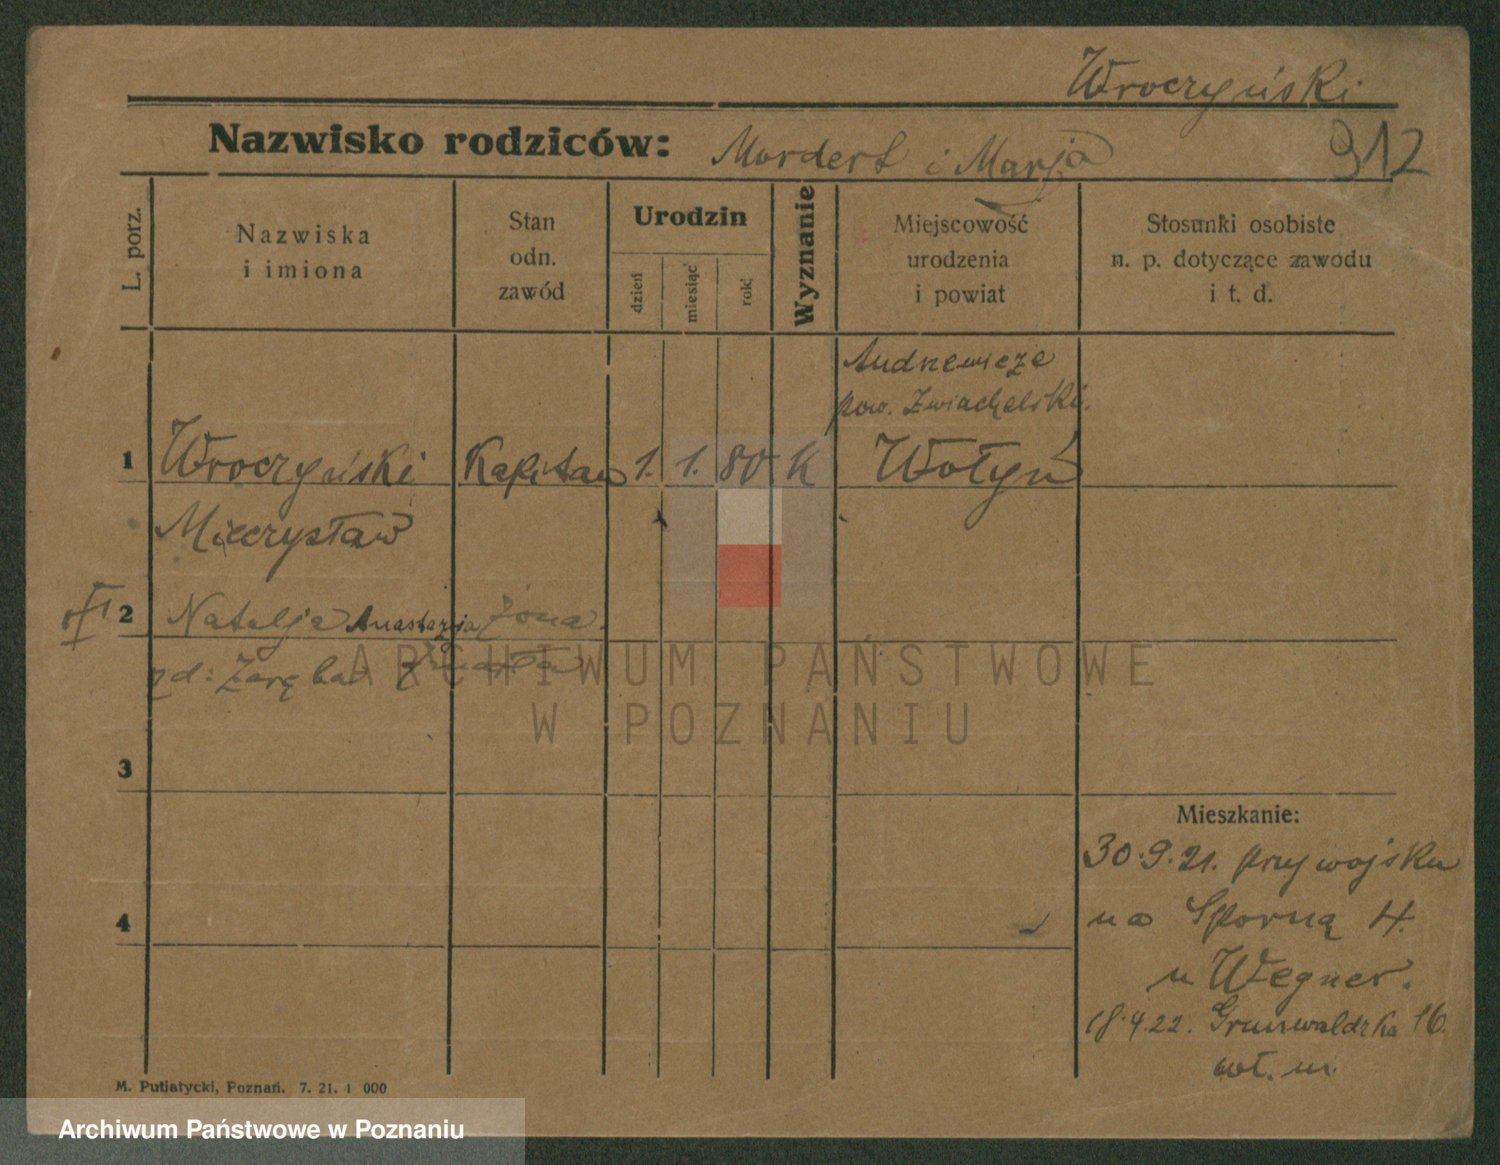 Wroczyński
Nazwisko rodziców: Mordert i Marja
912
L. porz.
Nazwiska
i imiona
Stan
odn.
zawód
Urodzin
dzień
miesiąc
rok
Wyznanie
Miejscowość
urodzenia
i powiat
Stosunki osobiste
n. p. dotyczące zawodu
i t. d.
pow. Zwiachelski.
1 Wroczyński Kapitan 1. 1. 80 K Wołyń
Mieczysław
2 Natalja Anastazja żona.
zd: Zaręba
ARCHIWUM PAŃSTWOWE
W POZNANIU
3
Mieszkanie:
30.9.21. przy wojsku
4
na Sporną 4.
u Wegner.
18.4.22. Grunwaldzka 16.
wł. m.
M. Putiatycki, Poznań. 7. 21. 1 000
Archiwum Państwowe w Poznaniu